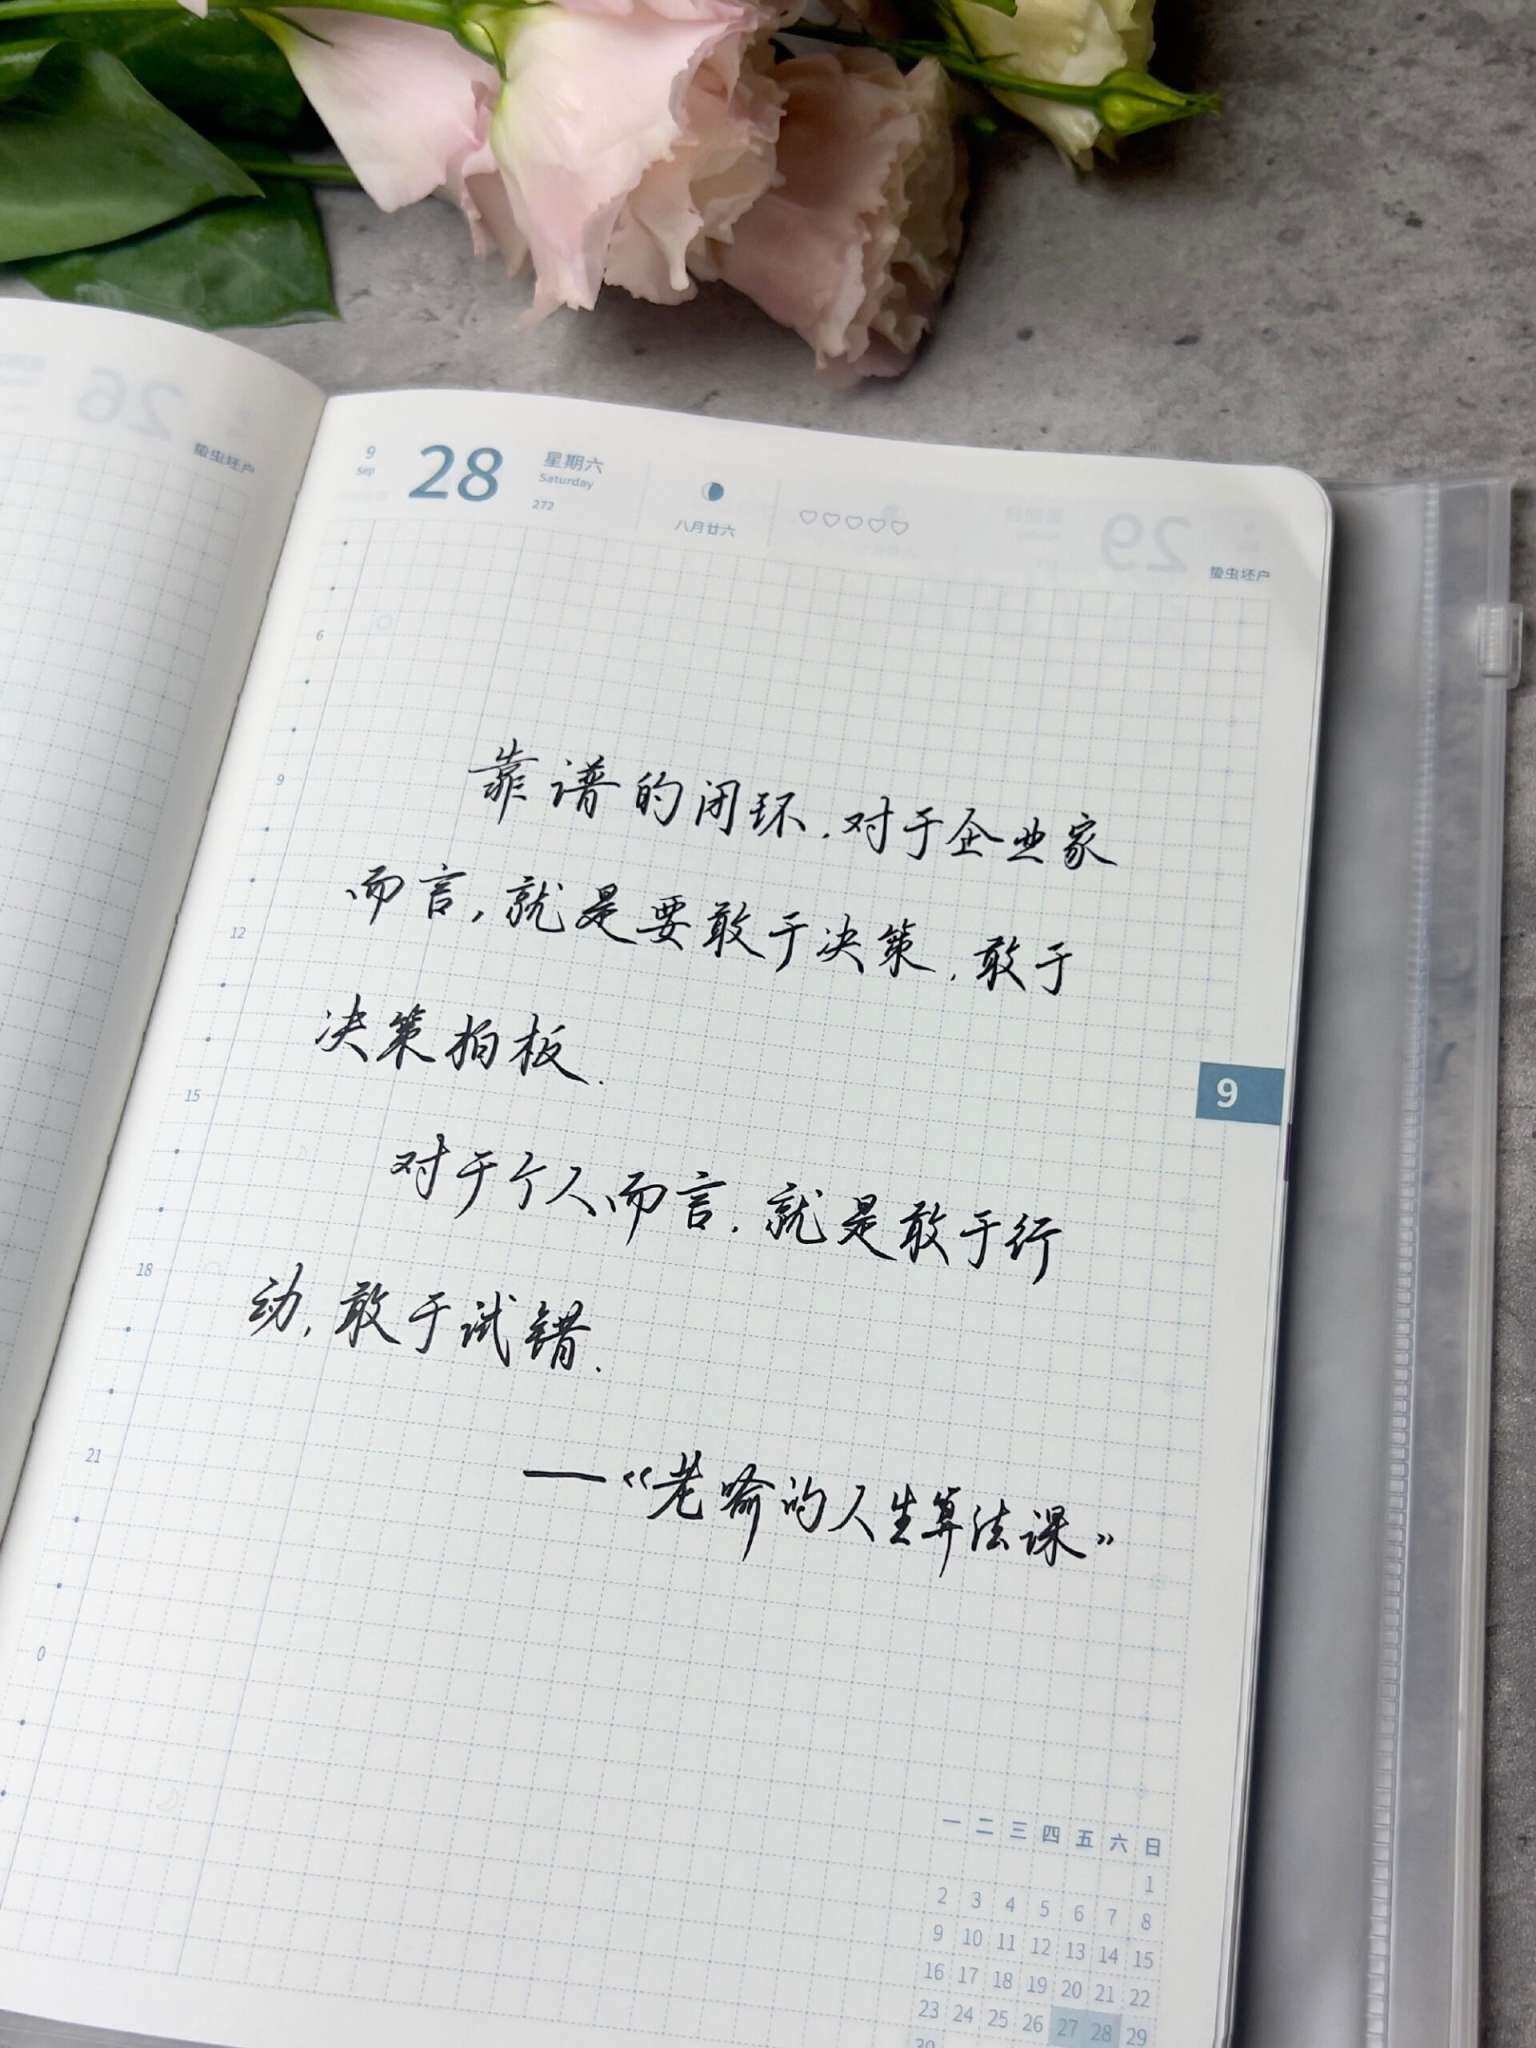 26
蛰虫坯户
9
Sep
28
星期六
Saturday
272
八月廿六
29
蛰虫坯户
6
9
12
15
18
21
0
靠谱的闭环,对于企业家
而言,就是要敢于决策,敢于
决策拍板.
对于个人而言,就是敢于行
动,敢于试错.
——《老喻的人生算法课》
9
一 二 三 四 五 六 日
1
2 3 4 5 6 7 8
9 10 11 12 13 14 15
16 17 18 19 20 21 22
23 24 25 26 27 28 29
30